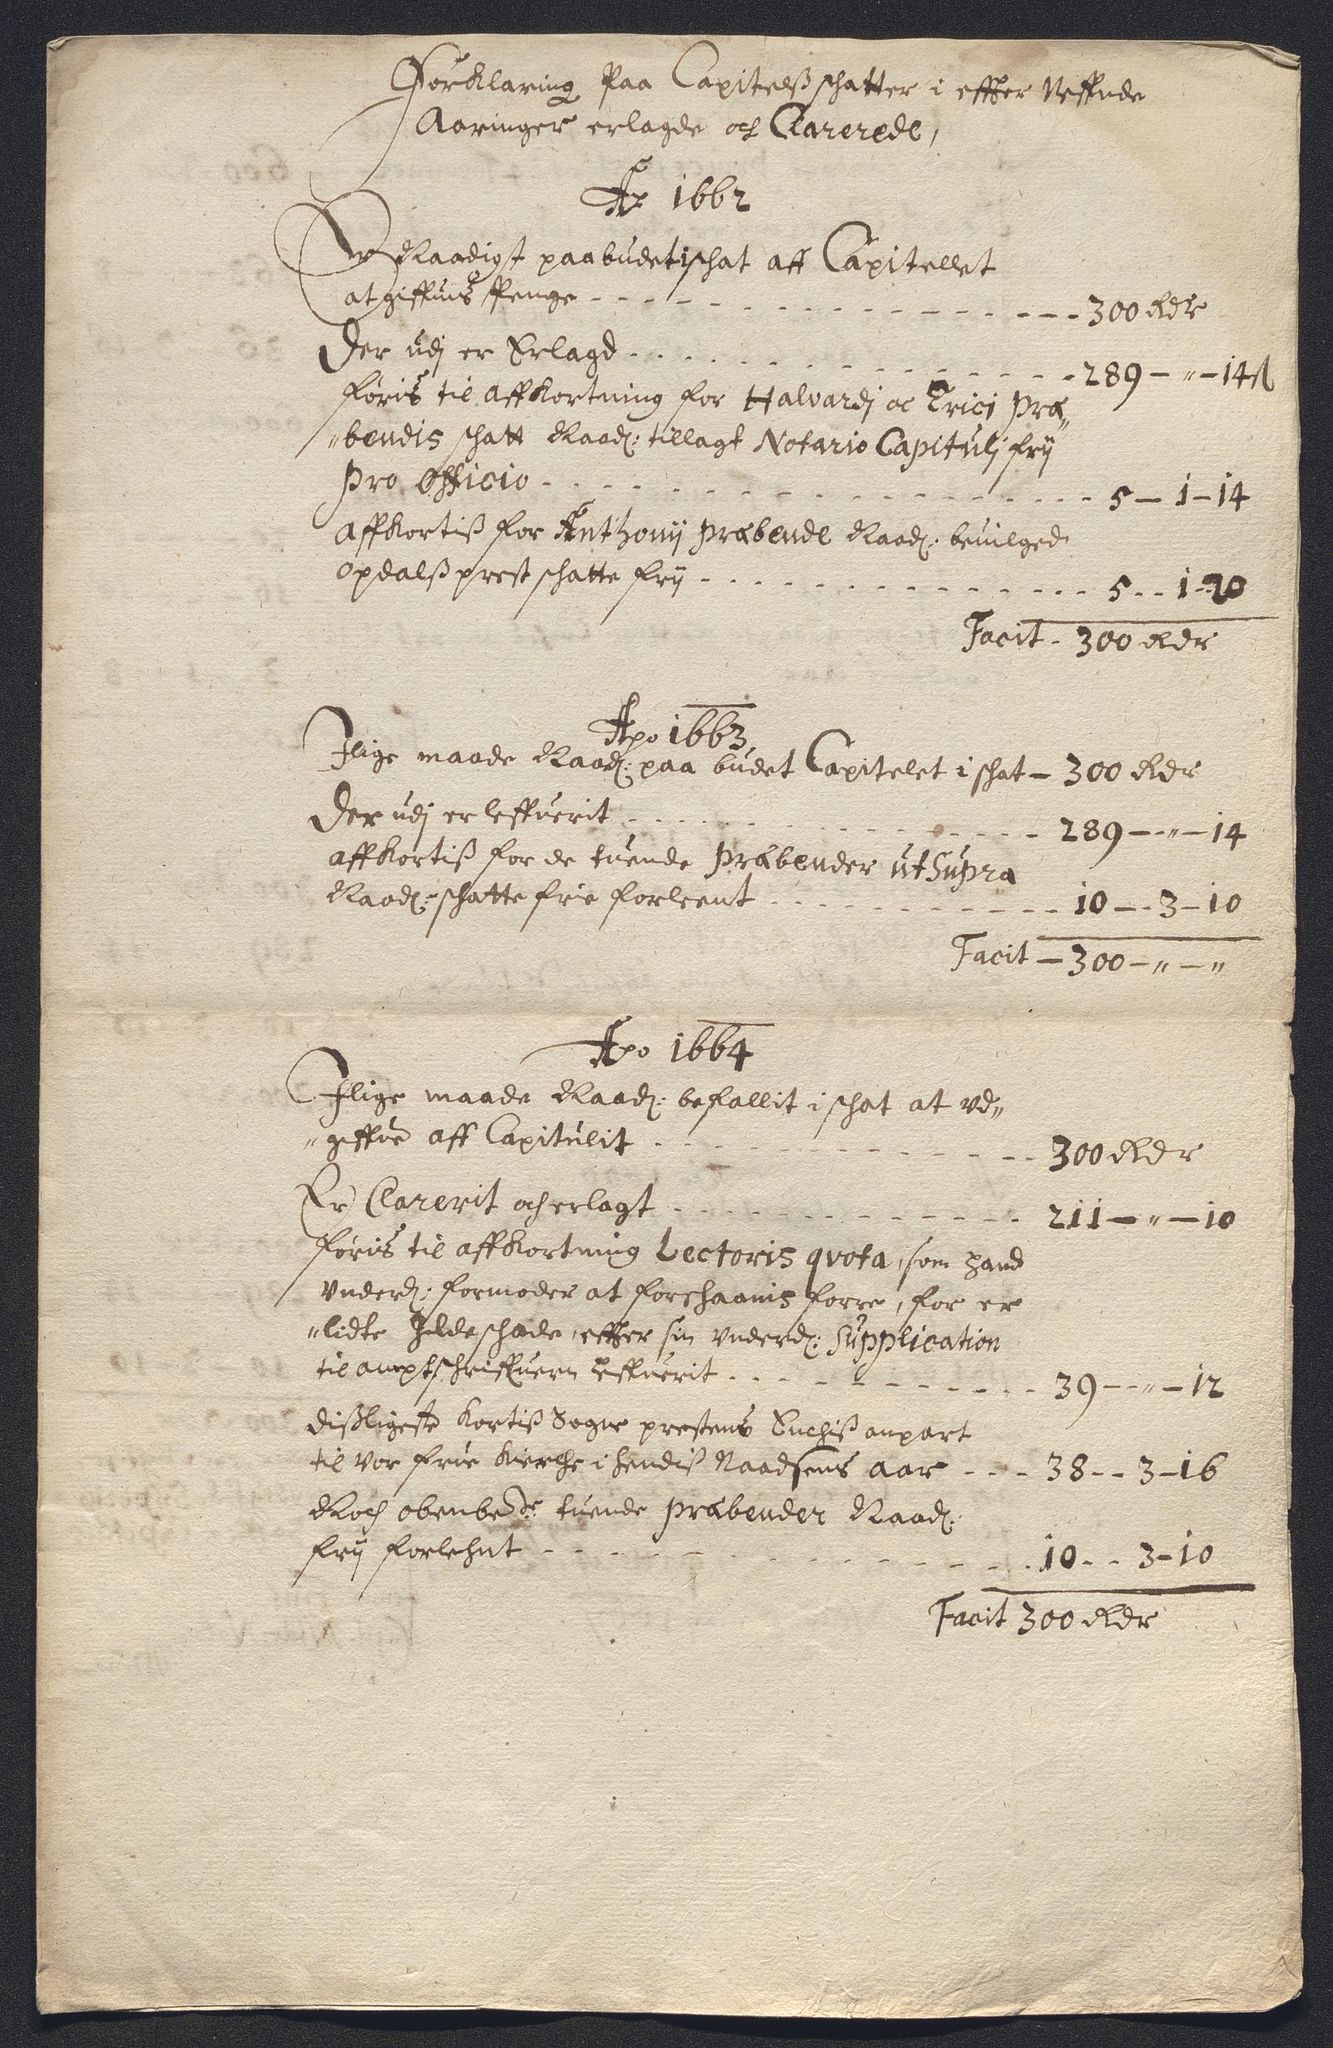 Forklaring Paa Capitelß schatter i effter Neffnde
Aaringer erlagde och Clarerede,
Ao 1662
Er Naadigst paabudet i schat aff Capitellet
at giffuis Penge - - - 300 Rdr
Der udj er Erlagd - - - 289 - " - 14 ß
føris til affkortning for Halvardj oc Erici Præ"
"bendis schatt Naad: tillagt Notario Capitulj frij
Pro Officio - - - 5 - 1 - 14
affkortiß for Anthonij Præbende Naad: beuilged
Opdalß prest schatte frij - - - 5 - - 1 - 20
Facit - 300 Rdr
Apo 1663
Jlige maade Naad: paa budet Capitelet i schat - 300 Rdr
Der udj er leffuerit - - - 289 - " - 14
affkortiß for de tuende Præbender ut Supra
Naad: schatte frie forleent - - - 10 - - 3 - 10
Facit - 300 - " - "
Apo 1664
Jlige maade Naad: befallit i schat at vd"
"geffue aff Capitulit - - - 300 Rdr
Er Clarerit och erlagt - - - 211 - " - 10
føris til affkortning Lectoris qvota, som hand
vnderd: formoder at forschaanis forre, for er
"lidte Jldeschade, effter sin vnderd: Supplication
til amptschriffuern leffuerit - - - 39 - " - 12
dißligeste kortiß Sogne prestens anpart
til vor frue Kierche i hendiß Naadsens aar - - - 38 - - 3 - 16
Noch obenbede tuende Præbender Naad:
frij forlehnt - - - 10 - - 3 - 10
Facit 300 Rdr